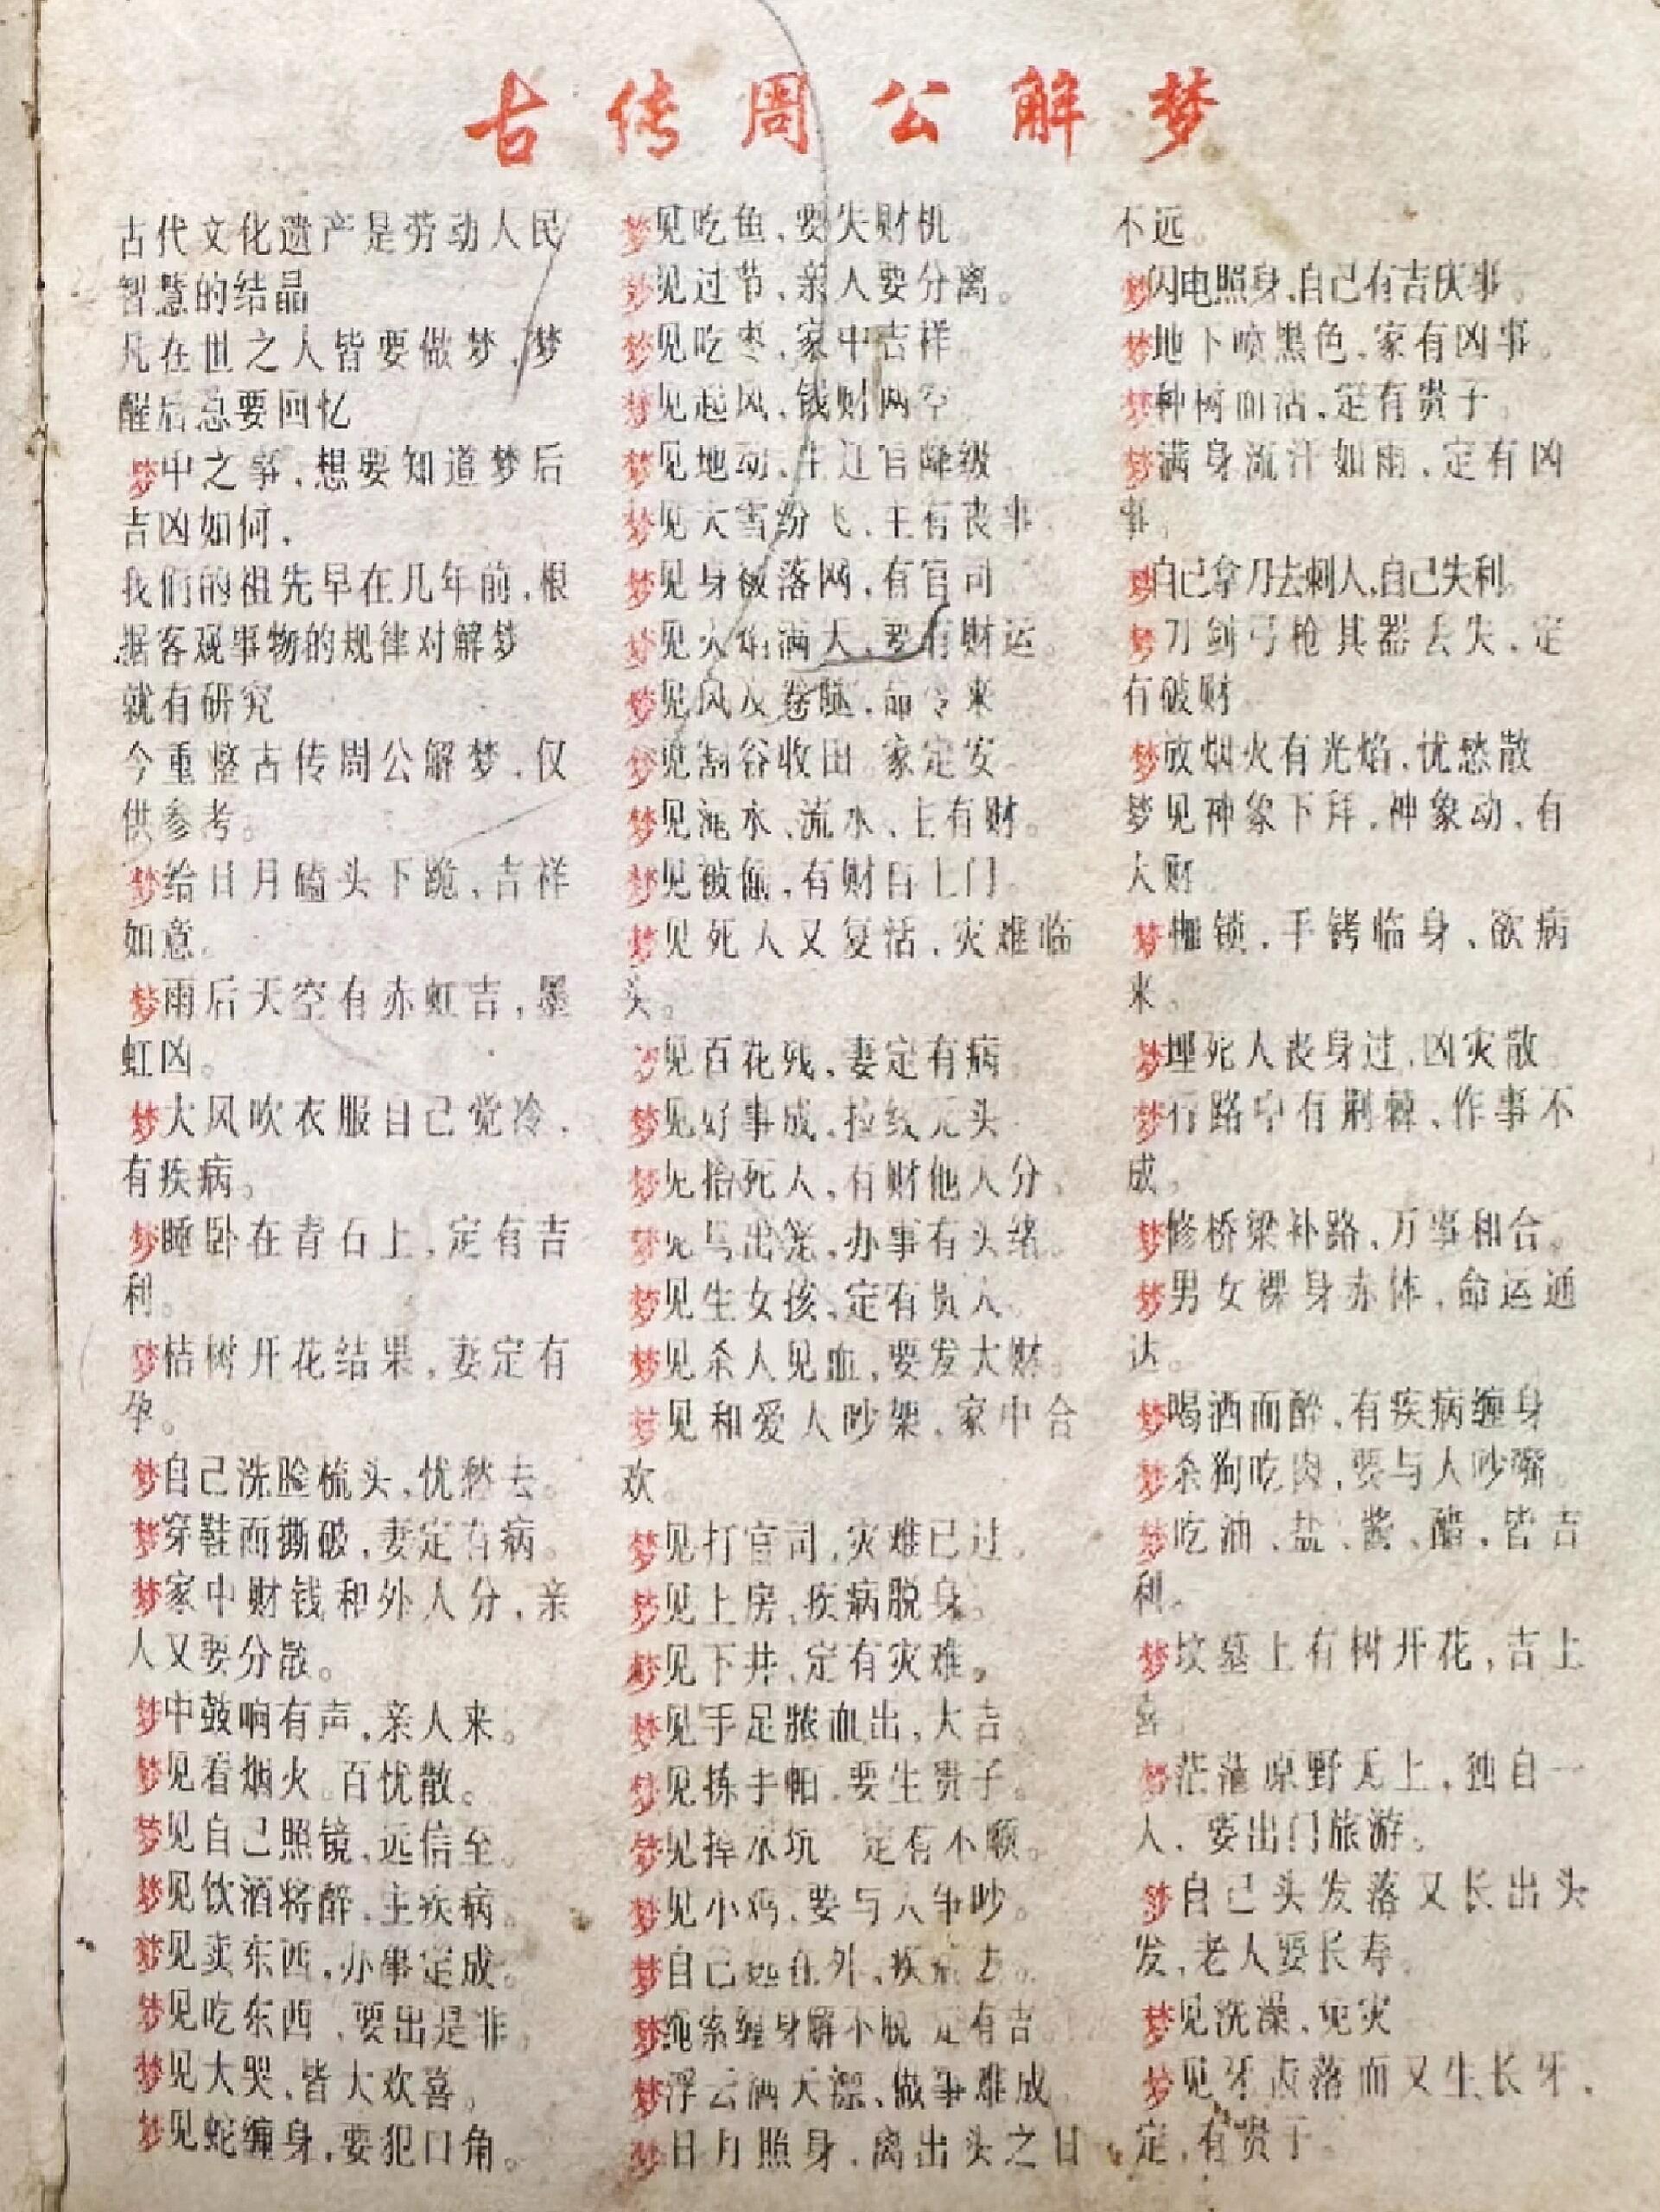 古传周公解梦
古代文化遗产是劳动人民
智慧的结晶
凡在世之人皆要做梦,梦
醒后总要回忆
梦中之事,想要知道梦后
吉凶如何,
我们的祖先早在几年前,根
据客观事物的规律对解梦
就有研究
今重整古传周公解梦,仅
供参考。
梦给日月磕头下跪,吉祥
如意。
梦雨后天空有赤虹吉,墨
虹凶。
梦大风吹衣服自己觉冷,
有疾病。
梦睡卧在青石上,定有吉
利。
梦桔树开花结果,妻定有
孕。
梦自己洗脸梳头,忧愁去。
梦穿鞋而撕破,妻定有病。
梦家中财钱和外人分,亲
人又要分散。
梦中鼓响有声,亲人来。
梦见看烟火。百忧散。
梦见自己照镜,远信至。
梦见饮酒将醉,主疾病。
梦见卖东西,办事定成。
梦见吃东西,要出是非。
梦见大哭,皆大欢喜。
梦见蛇缠身,要犯口角。
梦见吃鱼,要失财机。
梦见过节,亲人要分离。
梦见吃枣,家中吉祥
梦见起风,钱财两空
梦见地动,主迁官降级
梦见大雪纷飞,主有丧事
梦见身被落网,有官司
梦见火焰满天,要有财运。
梦见风 卷 ,命令来
梦见割谷收田 家定安
梦见 水、流水、主有财。
梦见被偷,有财自上门。
梦见死人又复活,灾难临
头。
梦见百花残,妻定有病
梦见好事成,拉线无头
梦见抬死人,有财他人分。
梦见 出笼,办事有头绪。
梦见生女孩,定有贵人。
梦见杀人见血,要发大财。
梦见和爱人吵架,家中合
欢。
梦见打官司,灾难已过。
梦见上房,疾病脱身。
梦见下井,定有灾难。
梦见手足脓血出,大吉。
梦见拣手帕,要生贵子。
梦见掉水坑 定有不顺。
梦见小鸡,要与人争吵。
梦自己 在外,疾病去。
梦绳索缠身解不脱 定有吉
梦浮云满天漂、做事难成
梦日月照身,离出头之日
不远。
梦闪电照身,自己有吉庆事。
梦地下喷黑色,家有凶事。
梦种树而活,定有贵子。
梦满身流汗如雨,定有凶
事。
梦自己拿刀去刺人,自己失利。
梦刀剑弓枪其器丢失,定
有破财
梦放烟火有光焰,忧愁散
梦见神象下拜,神象动,有
大财
梦枷锁,手铐临身、欲病
来。
梦埋死人丧身过,凶灾散
梦行路中有荆棘、作事不
成。
梦修桥梁补路、万事和合。
梦男女裸身赤体,命运通
达。
梦喝酒而醉,有疾病缠身
梦杀狗吃肉,要与人吵嘴。
梦吃油、盐、酱、醋,皆吉
利。
梦坟墓上有树开花,吉上
喜
梦茫茫原野无上,独自一
人,要出门旅游。
梦自己头发落又长出头
发,老人要长寿。
梦见洗澡,免灾
梦见牙齿落而又生长牙,
定,有贤于。